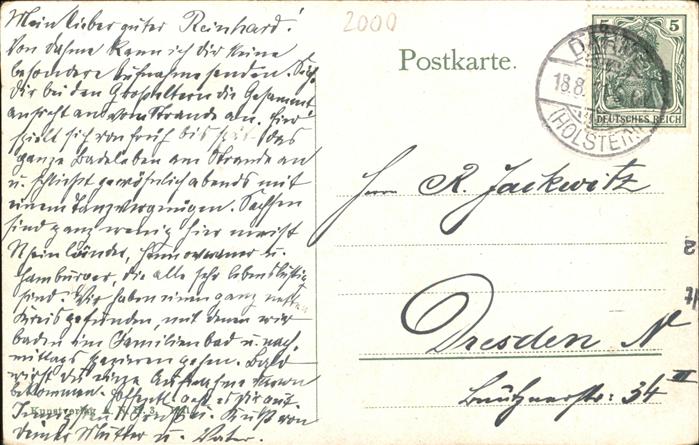 Mein lieber guter Reinhard!
Von Dahme kann ich dir keine
besondere Aufnahme senden. Sieh
dir bei den Großeltern die Gesammt
ansicht an vom Strande an. Hier
spielt sich von früh bis spät das
ganze Badeleben am Strande an
u. schließt gewöhnlich abends mit
einem Tanzvergnügen. Sachsen
sind ganz wenig hier meist
Rheinländer, Hannoveraner u.
Hamburger, die alle sehr lebenslustig
sind. Wir haben einen ganz netten
Kreis gefunden, mit denen wir
baden im Familienbad u. nach-
mittags spazieren gehen. Bald
wirst du eine Aufnahme davon
bekommen. Hoffentl. geht es dir gut
Innigen Gruß u. Kuß von
deiner Mutter u. Vater.
Kunstverlag
2000
Postkarte.
5 5
DEUTSCHES REICH
DAHME
18.8.
(HOLSTEIN)
Herrn R. Jackwitz
Dresden N
Büchnerstr: 34 III